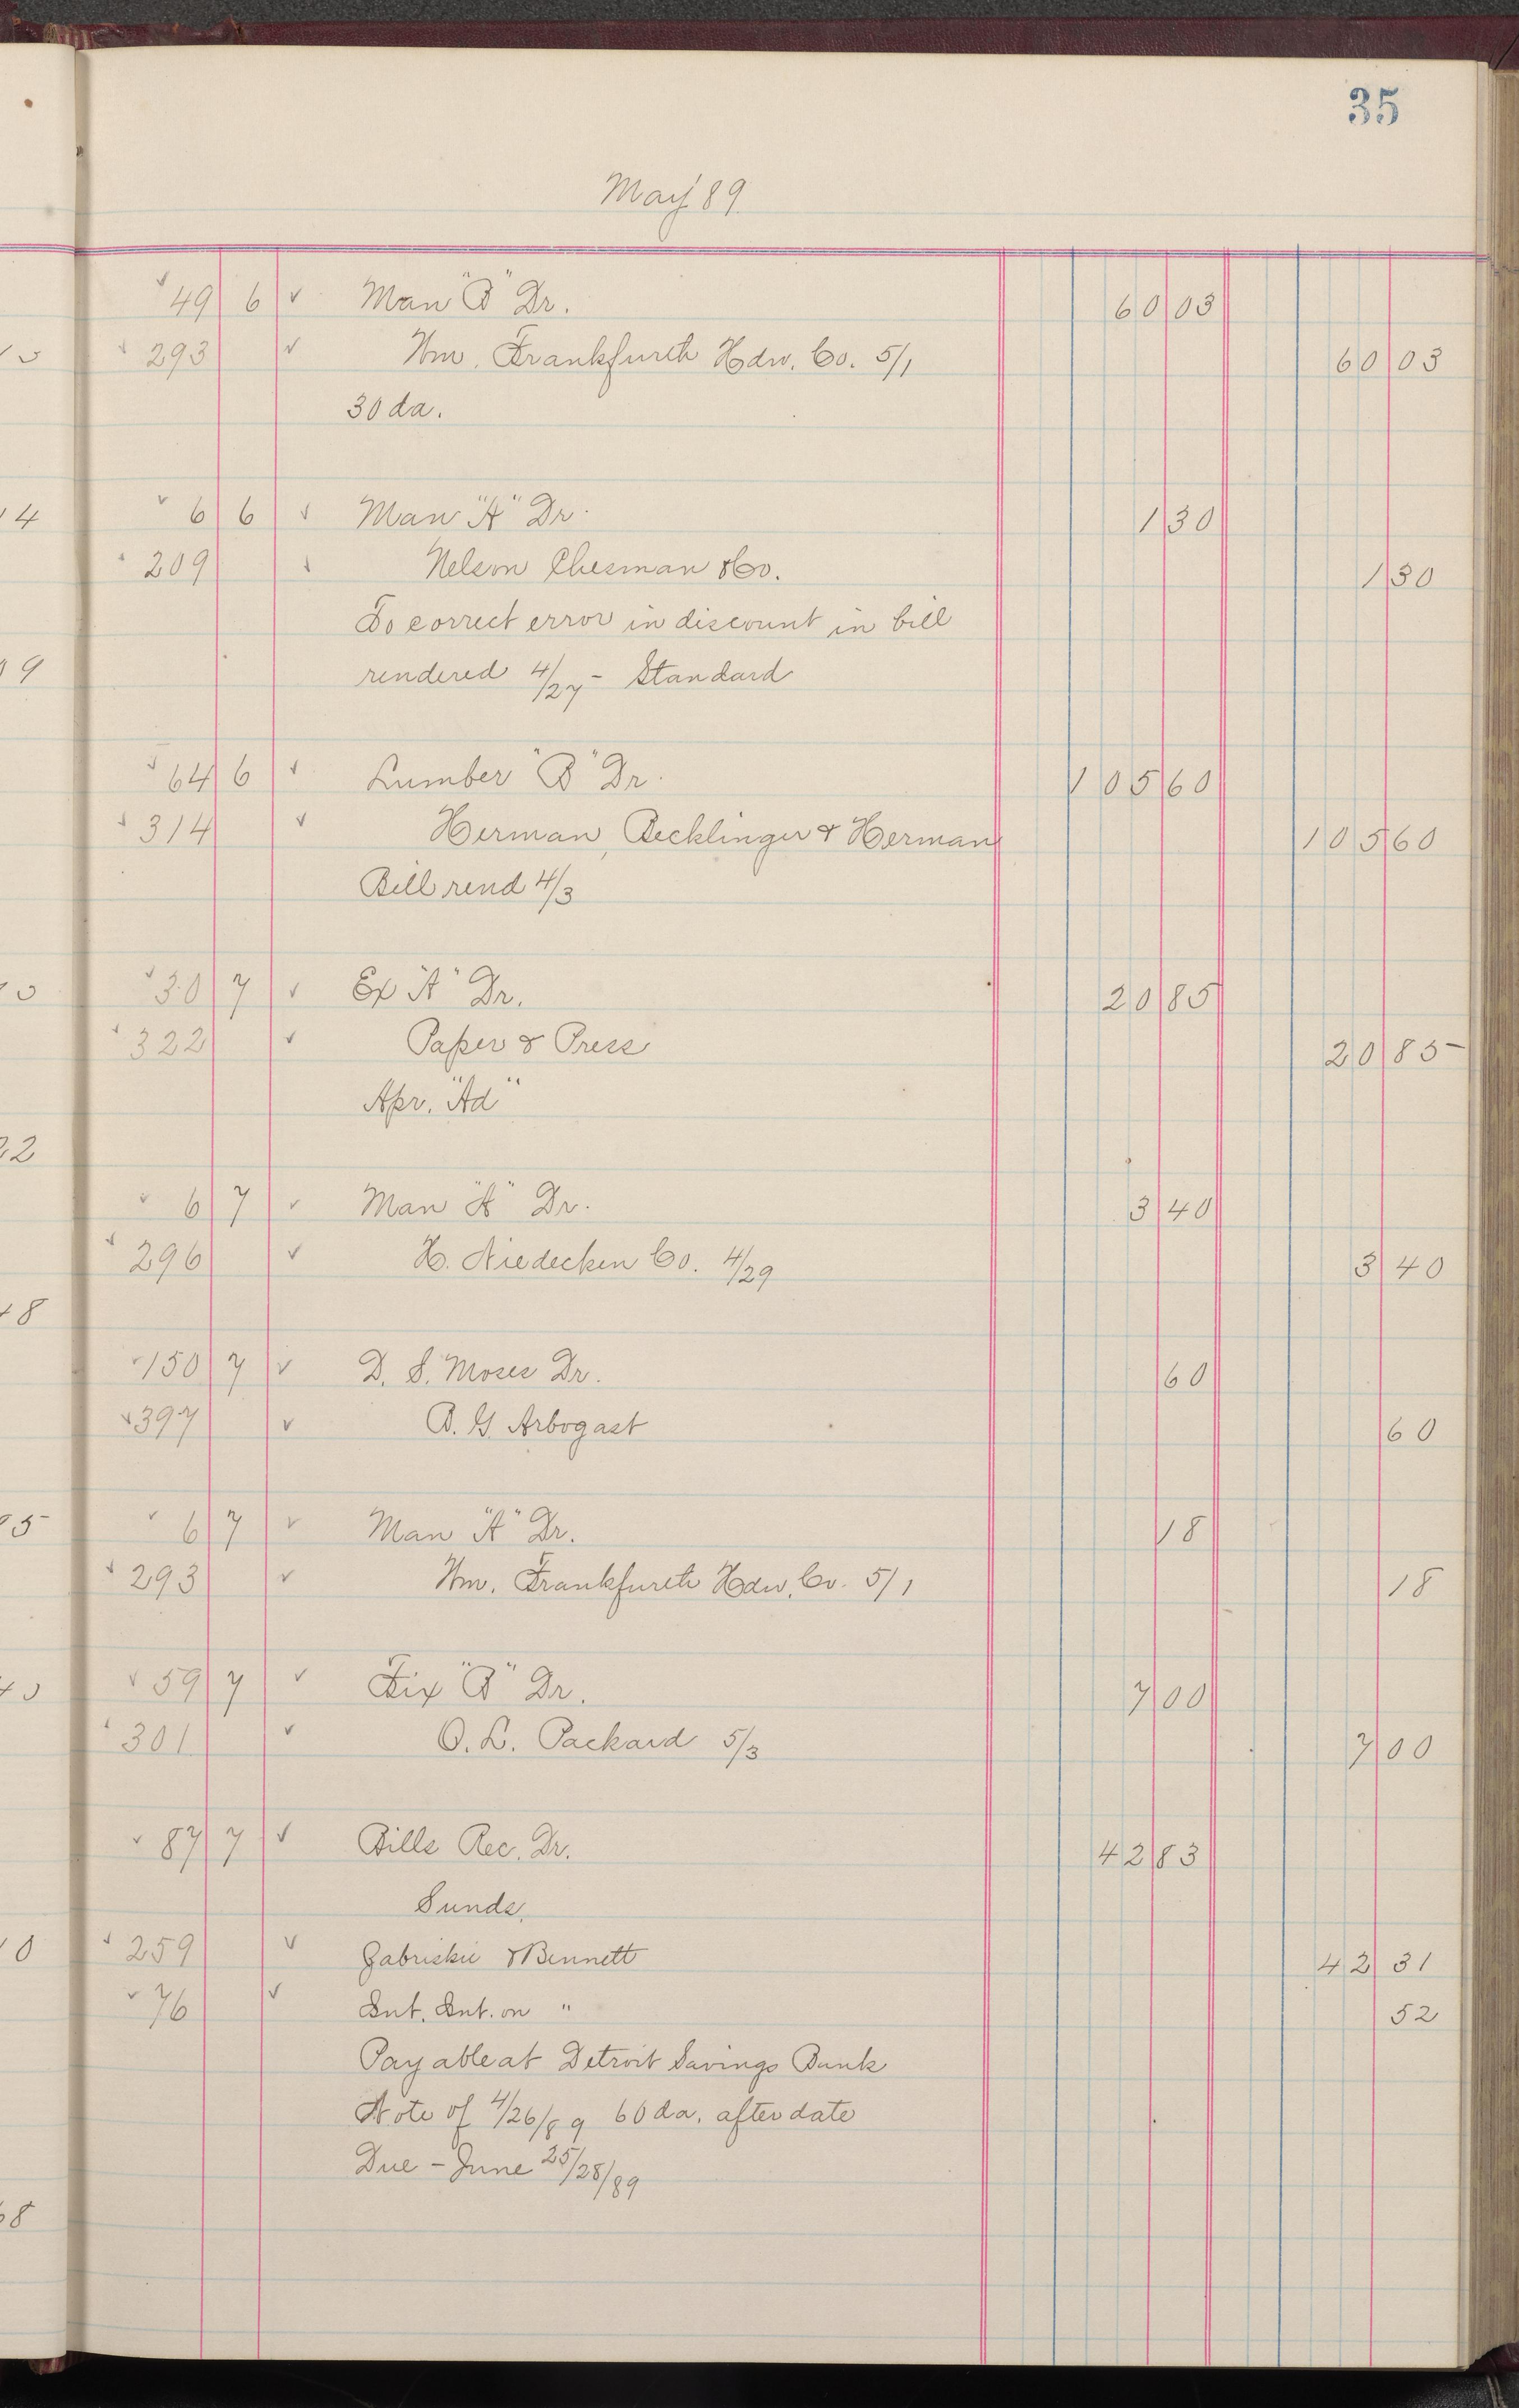 35
May '89
49 6 ✓ Man "B" Dr. 60 03
293 ✓ Wm. Frankfurth Hdw. Co. 5/1 60 03
30 da.
6 6 ✓ Man "A" Dr. 1 30
209 ✓ Nelson Chesman & Co. 1 30
To correct error in discount in bill
rendered 4/27 - Standard
64 6 ✓ Lumber "B" Dr. 105 60
314 ✓ Herman, Becklinger & Herman 105 60
Bill rend 4/3
30 7 ✓ Ex "A" Dr. 20 85
322 ✓ Paper & Press 20 85
Apr. "Ad"
6 7 ✓ Man "A" Dr. 3 40
296 ✓ H. Niedecken Co. 4/29 3 40
150 7 ✓ D. S. Moses Dr. 60
397 ✓ B. G. Arbogast 60
6 7 ✓ Man "A" Dr. 18
293 ✓ Wm. Frankfurth Hdw. Co. 5/1 18
59 7 ✓ Fix "B" Dr. 7 00
301 ✓ O. L. Packard 5/3 7 00
87 7 ✓ Bills Rec. Dr. 42 83
Sunds.
259 ✓ Zabriskie & Bennett 42 31
76 ✓ Int. Int. on " 52
Payable at Detroit Savings Bank
Note of 4/26/89 60 da. after date
Due - June 25/28/89